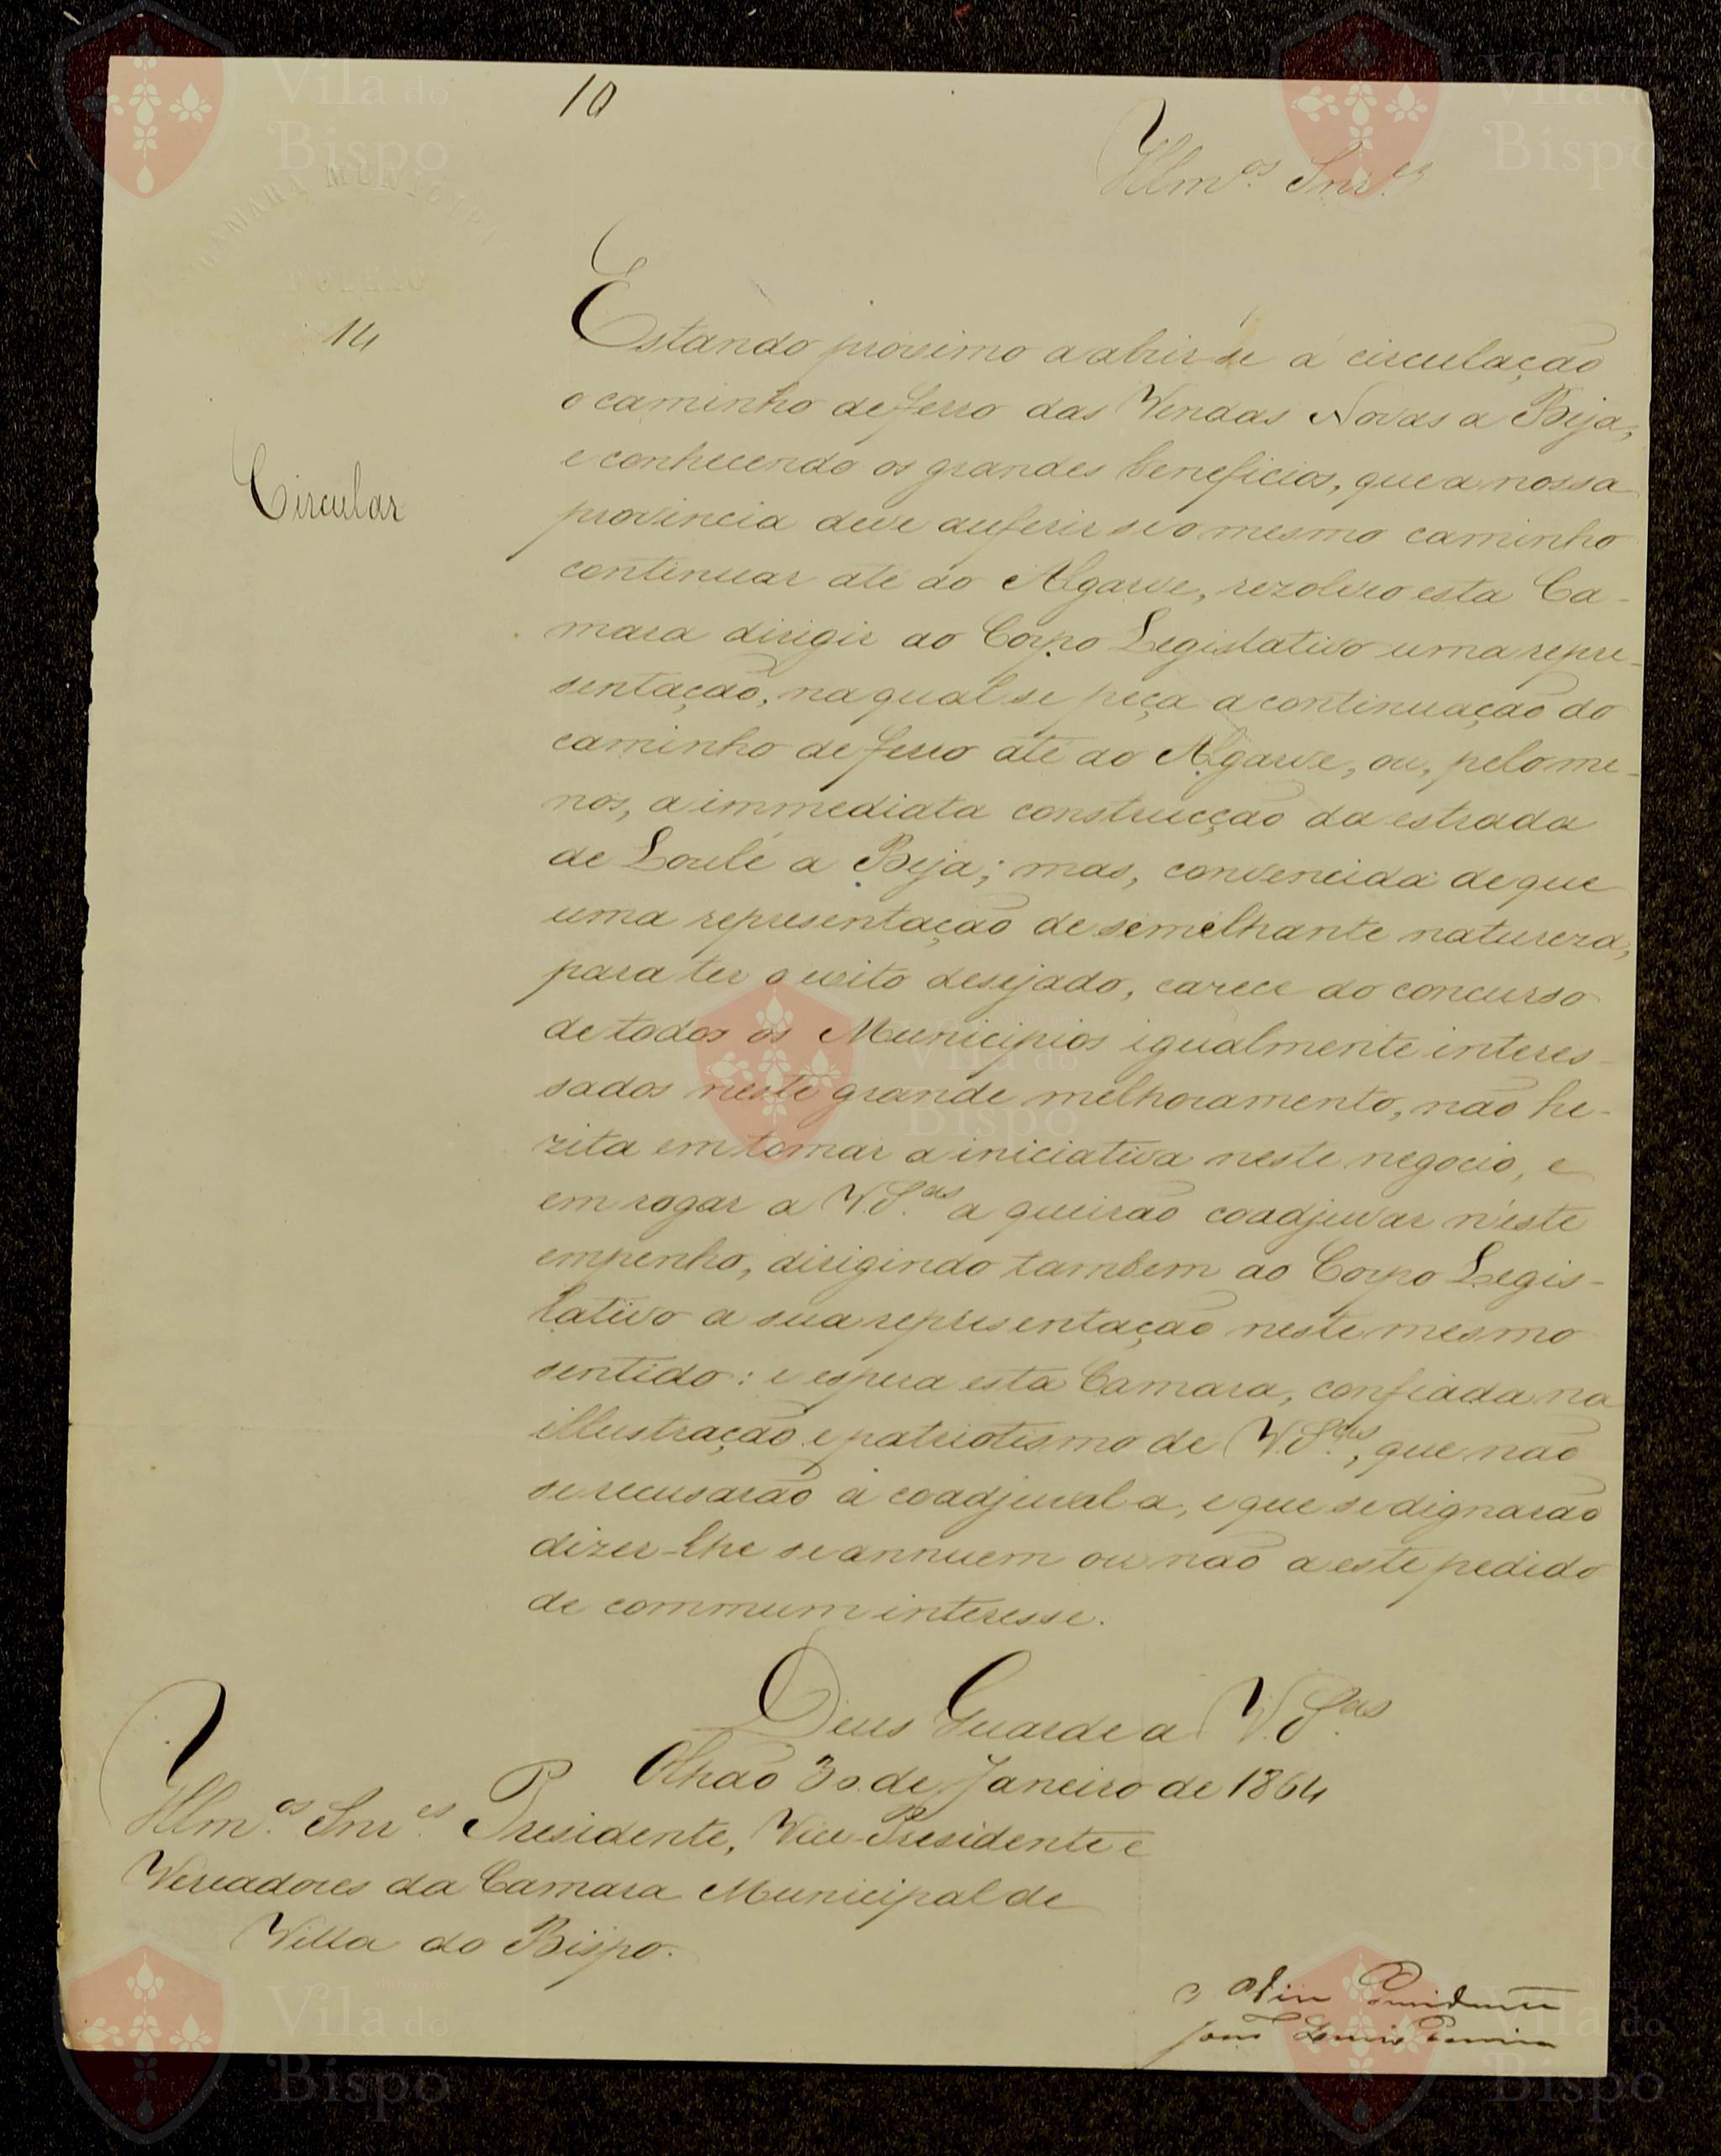 10
Illmos. Snres.
CAMARA MUNICIPAL
D'OLHÃO
14
Circular
Estando proximo a abrir se á circulação
o caminho de ferro das Vendas Novas a Beja,
e conhecendo os grandes beneficios, que a nossa
provincia deve auferir se o mesmo caminho
continuar até ao Algarve, rezolveo esta Ca-
mara dirigir ao Corpo Legislativo uma repre-
sentação, na qual se peça a continuação do
caminho de ferro até ao Algarve, ou, pelo me-
nos, a immediata construcção da estrada
de Loulé a Beja; mas, convencida de que
uma representação de semelhante natureza,
para ter o exito desejado, carece do concurso
de todos os Municipios igualmente interes-
sados neste grande melhoramento, não he-
zita em tomar a iniciativa neste negocio, e
em rogar a V.Sas. a queirão coadjuvar n'este
empenho, dirigindo tambem ao Corpo Legis-
lativo a sua representação neste mesmo
sentido: e espera esta Camara, confiada na
illustração e patriotismo de V.Sas., que não
se recusarão a coadjuval-a, e que se dignarão
dizer-lhe se annuem ou não a este pedido
de commum interesse.
Deus Guarde a V.Sas.
Olhão 30 de Janeiro de 1864
Illmos. Snres. Presidente, Vice-Presidente e
Vereadores da Camara Municipal de
Villa do Bispo.
O Vice Presidente
Vila do
Bispo
Vila do
Bispo
Vila do
Bispo
Vila do
Bispo
Vila do
Bispo